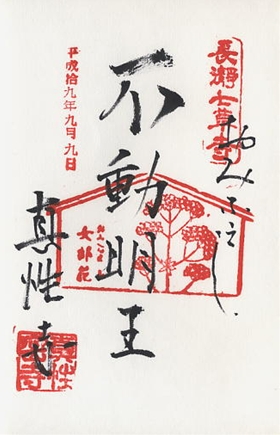 長瀞七草寺
おみなえし
不動明王
おみなえし
女郎花
平成拾九年九月九日
真性寺
真性寺